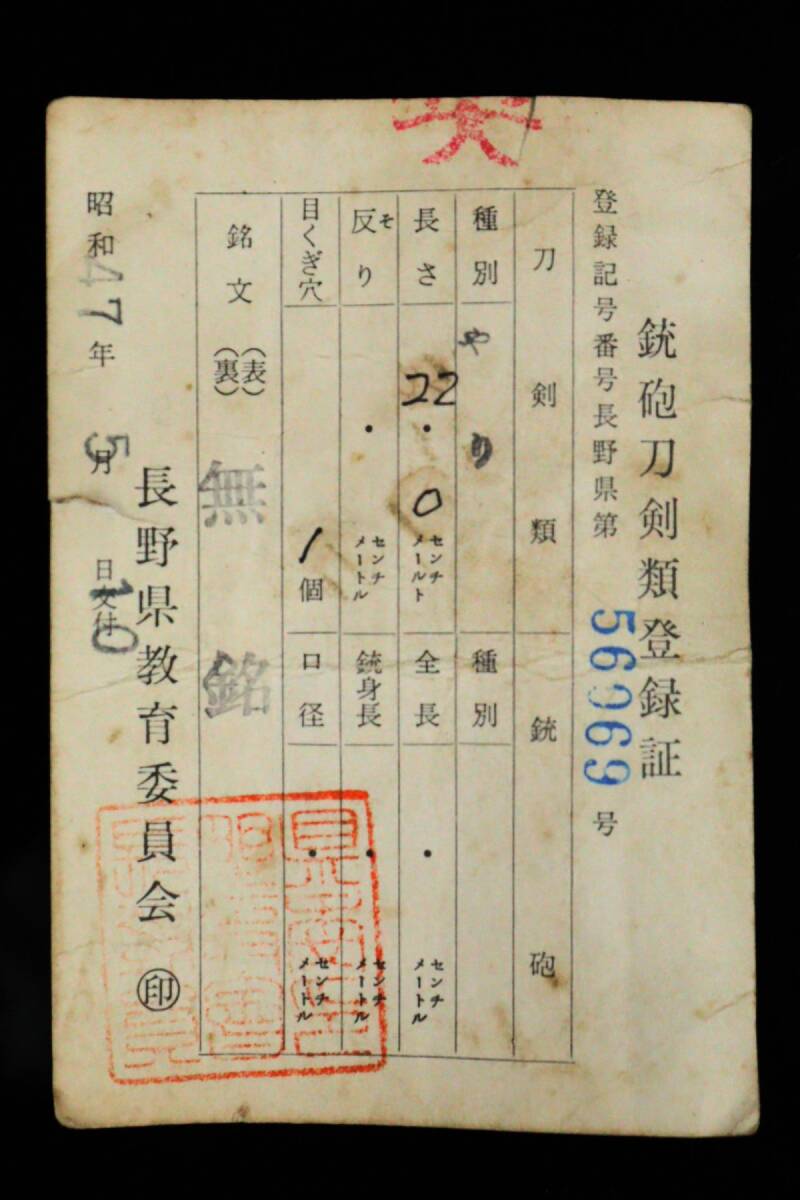 銃砲刀剣類登録証
登録記号番号長野県第56969号
刀剣類
銃砲
種別
やり
種別
長さ
22.0
センチ
メールト
全長
・
センチ
メートル
反り
そ
・
センチ
メートル
銃身長
・
センチ
メートル
目くぎ穴
1個
口径
・
センチ
メートル
銘文
(表)
(裏)
無銘
長野県教育委員会㊞
昭和47年5月10日交付